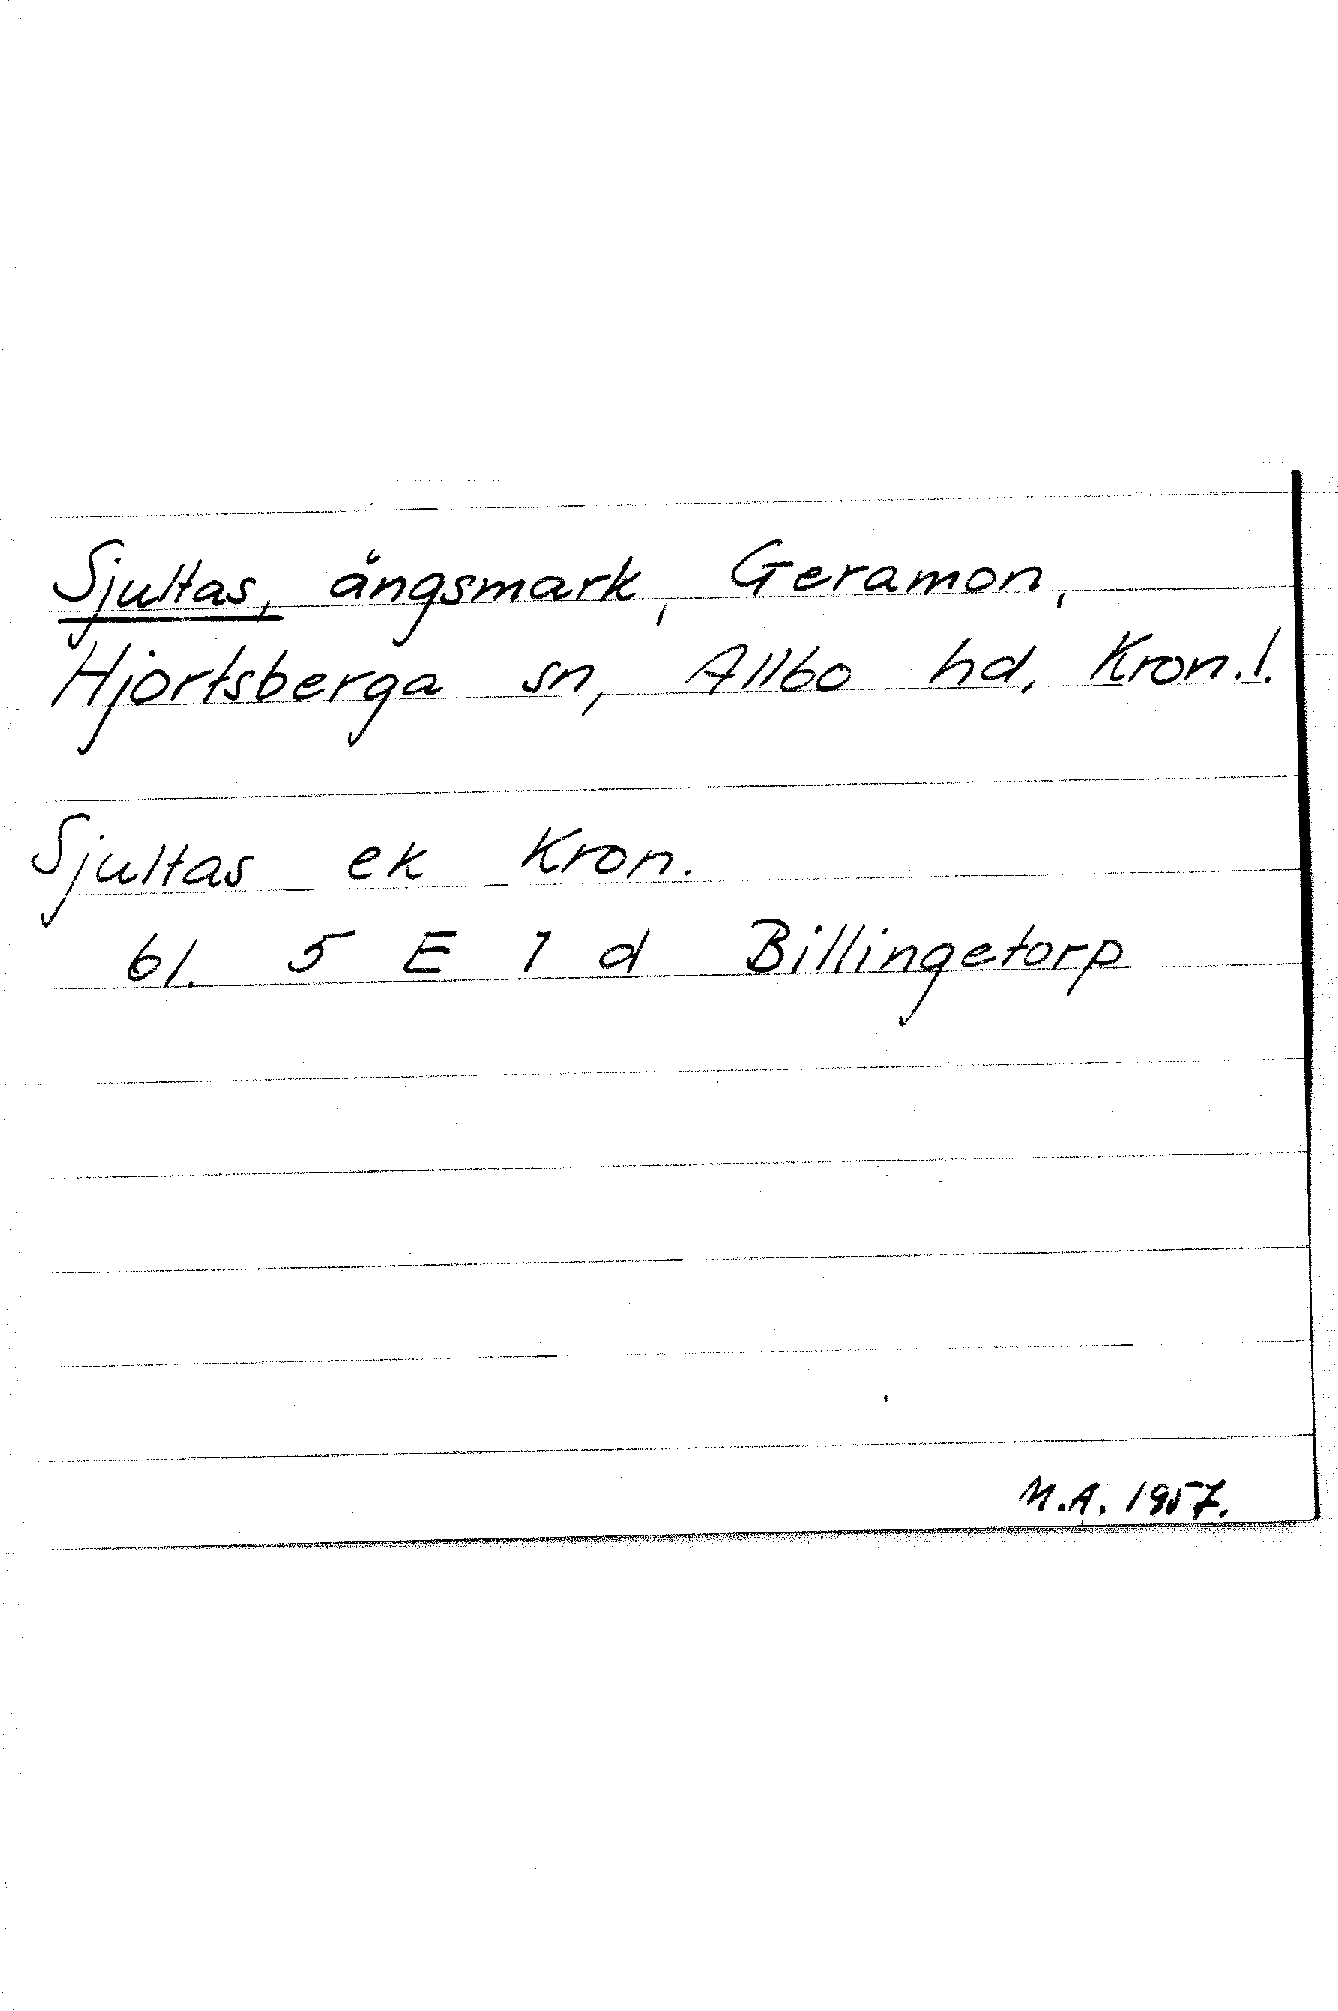 Sjultas, ängsmark, Geramon,
Hjortsberga sn, Allbo hd, Kron.l.
Sjultas ek Kron.
bl. 5 E 1 d Billingetorp
M.A. 1957.